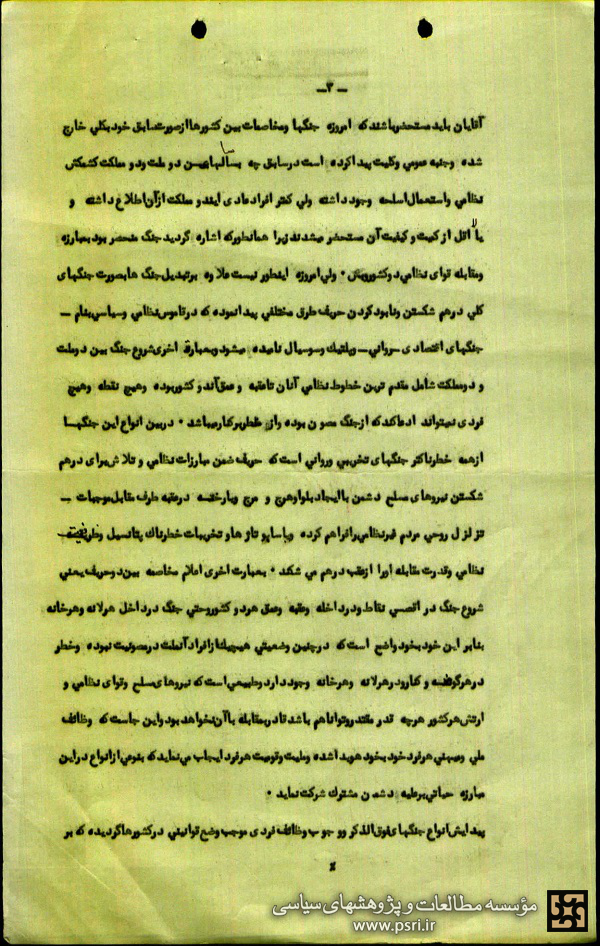 ـ ۳ ـ
آقایان باید مستحضر باشند که امروزه جنگها و مخاصمات بین کشورها از صورت سابق خود بکلی خارج
شده و جنبه عمومی و کلیت پیدا کرده است در سابق چه بسا سالها بین دو ملت و دو مملکت کشمکش
نظامی و استعمال اسلحه وجود داشته ولی کمتر افراد عادی ایندو مملکت از آن اطلاع داشته و
یا لااقل از کمیت و کیفیت آن مستحضر میشدند زیرا همانطور که اشاره گردید جنگ منحصر بود بمبارزه
و مقابله قوای نظامی دو کشور و بس ۰ ولی امروزه اینطور نیست علاوه بر تبدیل جنگ ها بصورت جنگهای
کلی درهم شکستن و نابود کردن حریف طرق مختلفی پیدا نموده که در قاموس نظامی و سیاسی بنام ـ
جنگهای اقتصادی ـ روانی ـ پلتیك و سوسیال نامیده میشود و بعبارة اخری شروع جنگ بین دو ملت
و دو مملکت شامل مقدم ترین خطوط نظامی آنان تا عقبه و عمق آندو کشور بوده و هیچ نقطه و هیچ
فردی نمیتواند ادعا کند که از جنگ مصون بوده و از خطر برکنار میباشد ۰ در بین انواع این جنگهـا
از همه خطرناکتر جنگهای تخریبی و روانی است که حریف ضمن مبارزات نظامی و تلاش برای درهم
شکستن نیروهای مسلح دشمن با ایجاد بلوا و هرج و مرج و پا رخنه در عقبه طرف مقابل موجبات ـ
تزلزل روحی مردم غیر نظامی را فراهم کرده و با سابوتاژ ها و تخریبات خطرناك پتانسیل و
نظامی و قدرت مقابله او را از عقب درهم می شکند ۰ بعبارت اخری اعلام مخاصمه بین دو حریف یعنی
شروع جنگ در اقصی نقاط و در داخله و عقبه و عمق هر دو کشور و حتی جنگ در داخل هر لانه و هر خانه
بنابر این خود بخود واضح است که در چنین وضعیتی هیچیك از افراد آنملت در مصونیت نبوده و خطر
در هر گوشه و کنار و در هر لانه و هر خانه وجود دارد و طبیعی است که نیروهای مسلح و قوای نظامی و
ارتش هر کشور هر چه قدر مقتدر و توانا هم باشد قادر بمقابله با آن نخواهد بود و این جاست که وظائف
ملی و میهنی هر فرد خود بخود هویدا شده و ملیت و قومیت هر فرد ایجاب می نماید که بنوعی از انواع در این
مبارزه حیاتی بر علیه دشمن مشترك شرکت نماید ۰
پیدایش انواع جنگهای فوق الذکر و وجوب وظائف فردی موجب وضع قوانینی در کشورها گردیده که بر
مؤسسه مطالعات و پژوهشهای سیاسی
www.psri.ir